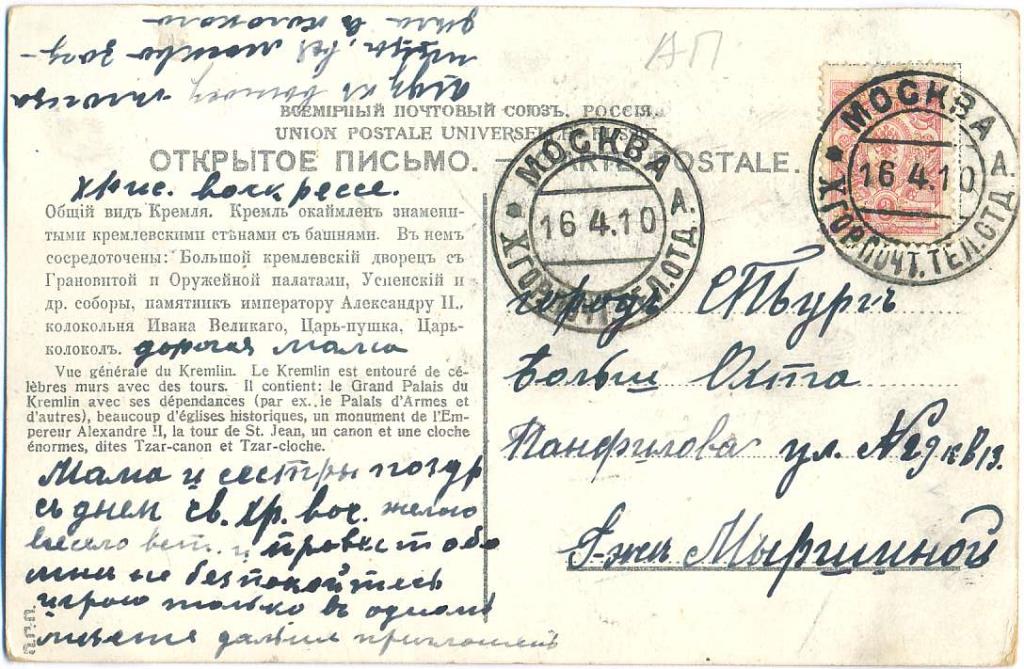 АП
ВСЕМІРНЫЙ ПОЧТОВЫЙ СОЮЗЪ. РОССІЯ.
UNION POSTALE UNIVERSELLE. RUSSIE
ОТКРЫТОЕ ПИСЬМО. — CARTE POSTALE.
Хрис. воскрессе.
Общій видъ Кремля. Кремль окаймленъ знамени-
тыми кремлевскими стѣнами съ башнями. Въ немъ
сосредоточены: Большой кремлевскій дворецъ съ
Грановитой и Оружейной палатами, Успенскій и
др. соборы, памятникъ императору Александру II.,
колокольня Ивана Великаго, Царь-пушка, Царь-
колоколъ. дорогая мама
Vue générale du Kremlin. Le Kremlin est entouré de cé-
lèbres murs avec des tours. Il contient: le Grand Palais du
Kremlin avec ses dépendances (par ex. le Palais d'Armes et
d'autres), beaucoup d'églises historiques, un monument de l'Em-
pereur Alexandre II, la tour de St. Jean, un canon et une cloche
énormes, dites Tzar-canon et Tzar-cloche.
Мама и сестры поздр
съ днем св. хр. вос. желаю
весело вст. и провест обо
мни не безпокойтесь
играю только въ одном
дальше приглашенъ
МОСКВА
16.4.10
Х ГОР.ПОЧТ.ТЕЛ.ОТД.
А.
МОСКВА
16.4.10
Х ГОР.ПОЧТ.ТЕЛ.ОТД.
А.
городъ СПБургъ
Больш Охта
Панфилова ул. №29 кв 13.
Г-жи Мыршиной
П.Г.П.